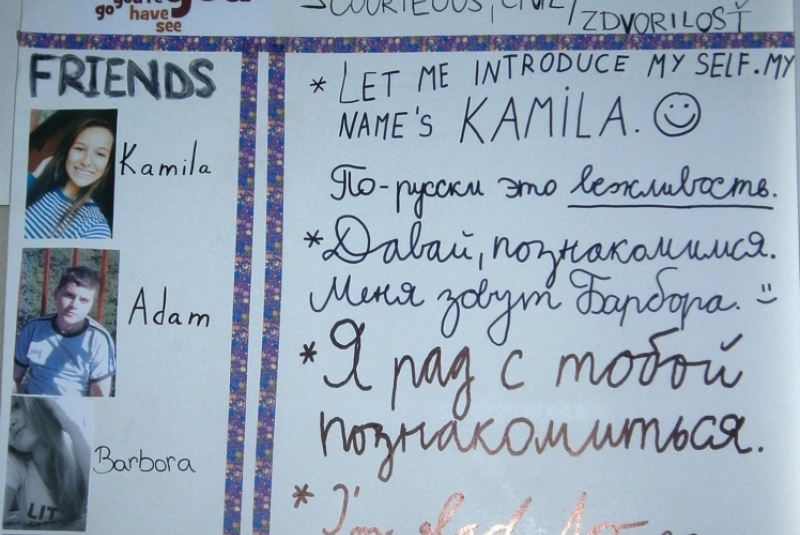 you're
go have
see
COURTEOUS, CIVIL/
ZDVORILOSŤ
FRIENDS
Kamila
Adam
LIT
Barbora
* LET ME INTRODUCE MY SELF. MY
NAME'S KAMILA. ☺
По-русски это вежливость.
* Давай, познакомимся.
Меня зовут Барбора. :)
* Я рад с тобой
познакомиться.
* I'm glad to